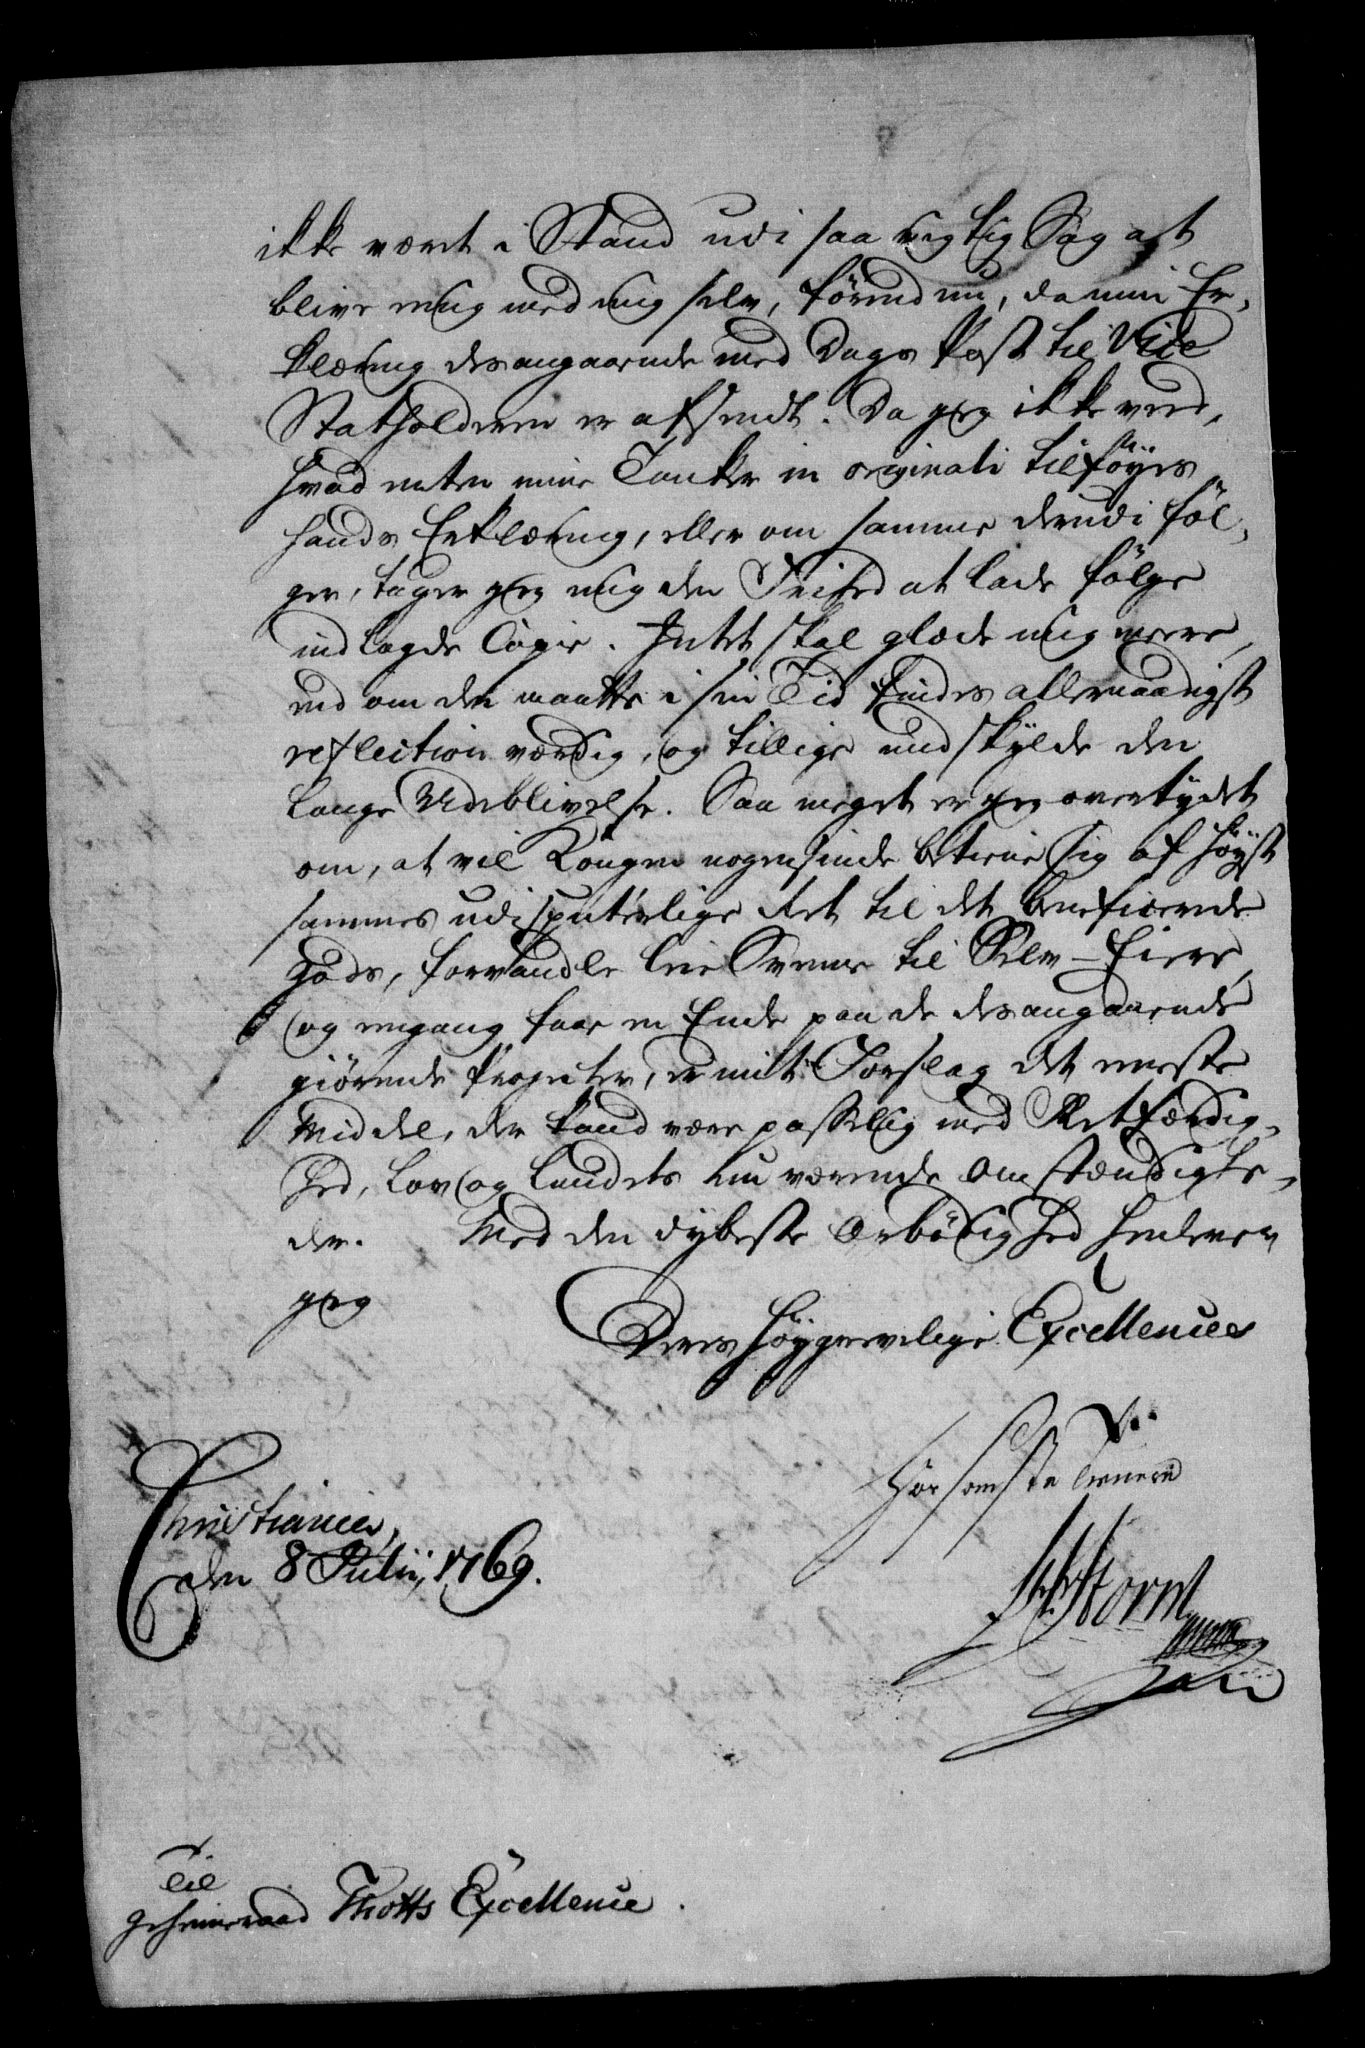 ikke været i Stand udi saa vigtig Sag at
blive enig med mig selv, førend nu, da min Er-
klæring desangaaende med Dags Post til Vice
Statholderen er afsendt. Da jeg ikke veed,
hvad enten mine Tanker in originali tilføyes
hands Erklæring, eller om samme derudi føl-
ger, tager jeg mig den Frihed at lade følge
indlagde Copie. Intet skal glæde mig meere,
end om den maatte i sin Tid findes allernaadigst
reflection værdig, og tillige undskylde den
lange Udeblivelse. Saa meget er jeg overtydet
om, at vil Kongen nogensinde betiene sig af Høyst
sammes udisputerlige Ret til det beneficerede
Gods, forvandle Leie til Selv-Eiere,
og engang faae en Ende paa de desangaaende
giørende Projecter, er mit Forslag det eneste
Middel, der kand være passelig med Retfærdig-
hed, Lov og Landets nu værende Omstændighe-
der. Med den dybeste Ærbødighed henlever
jeg
Deres Høygrevelige Excellences
Horsomste tienere
Storm
Christiania,
den 8 Julii, 1769.
Til
geheimeraad Thotts Excellence.